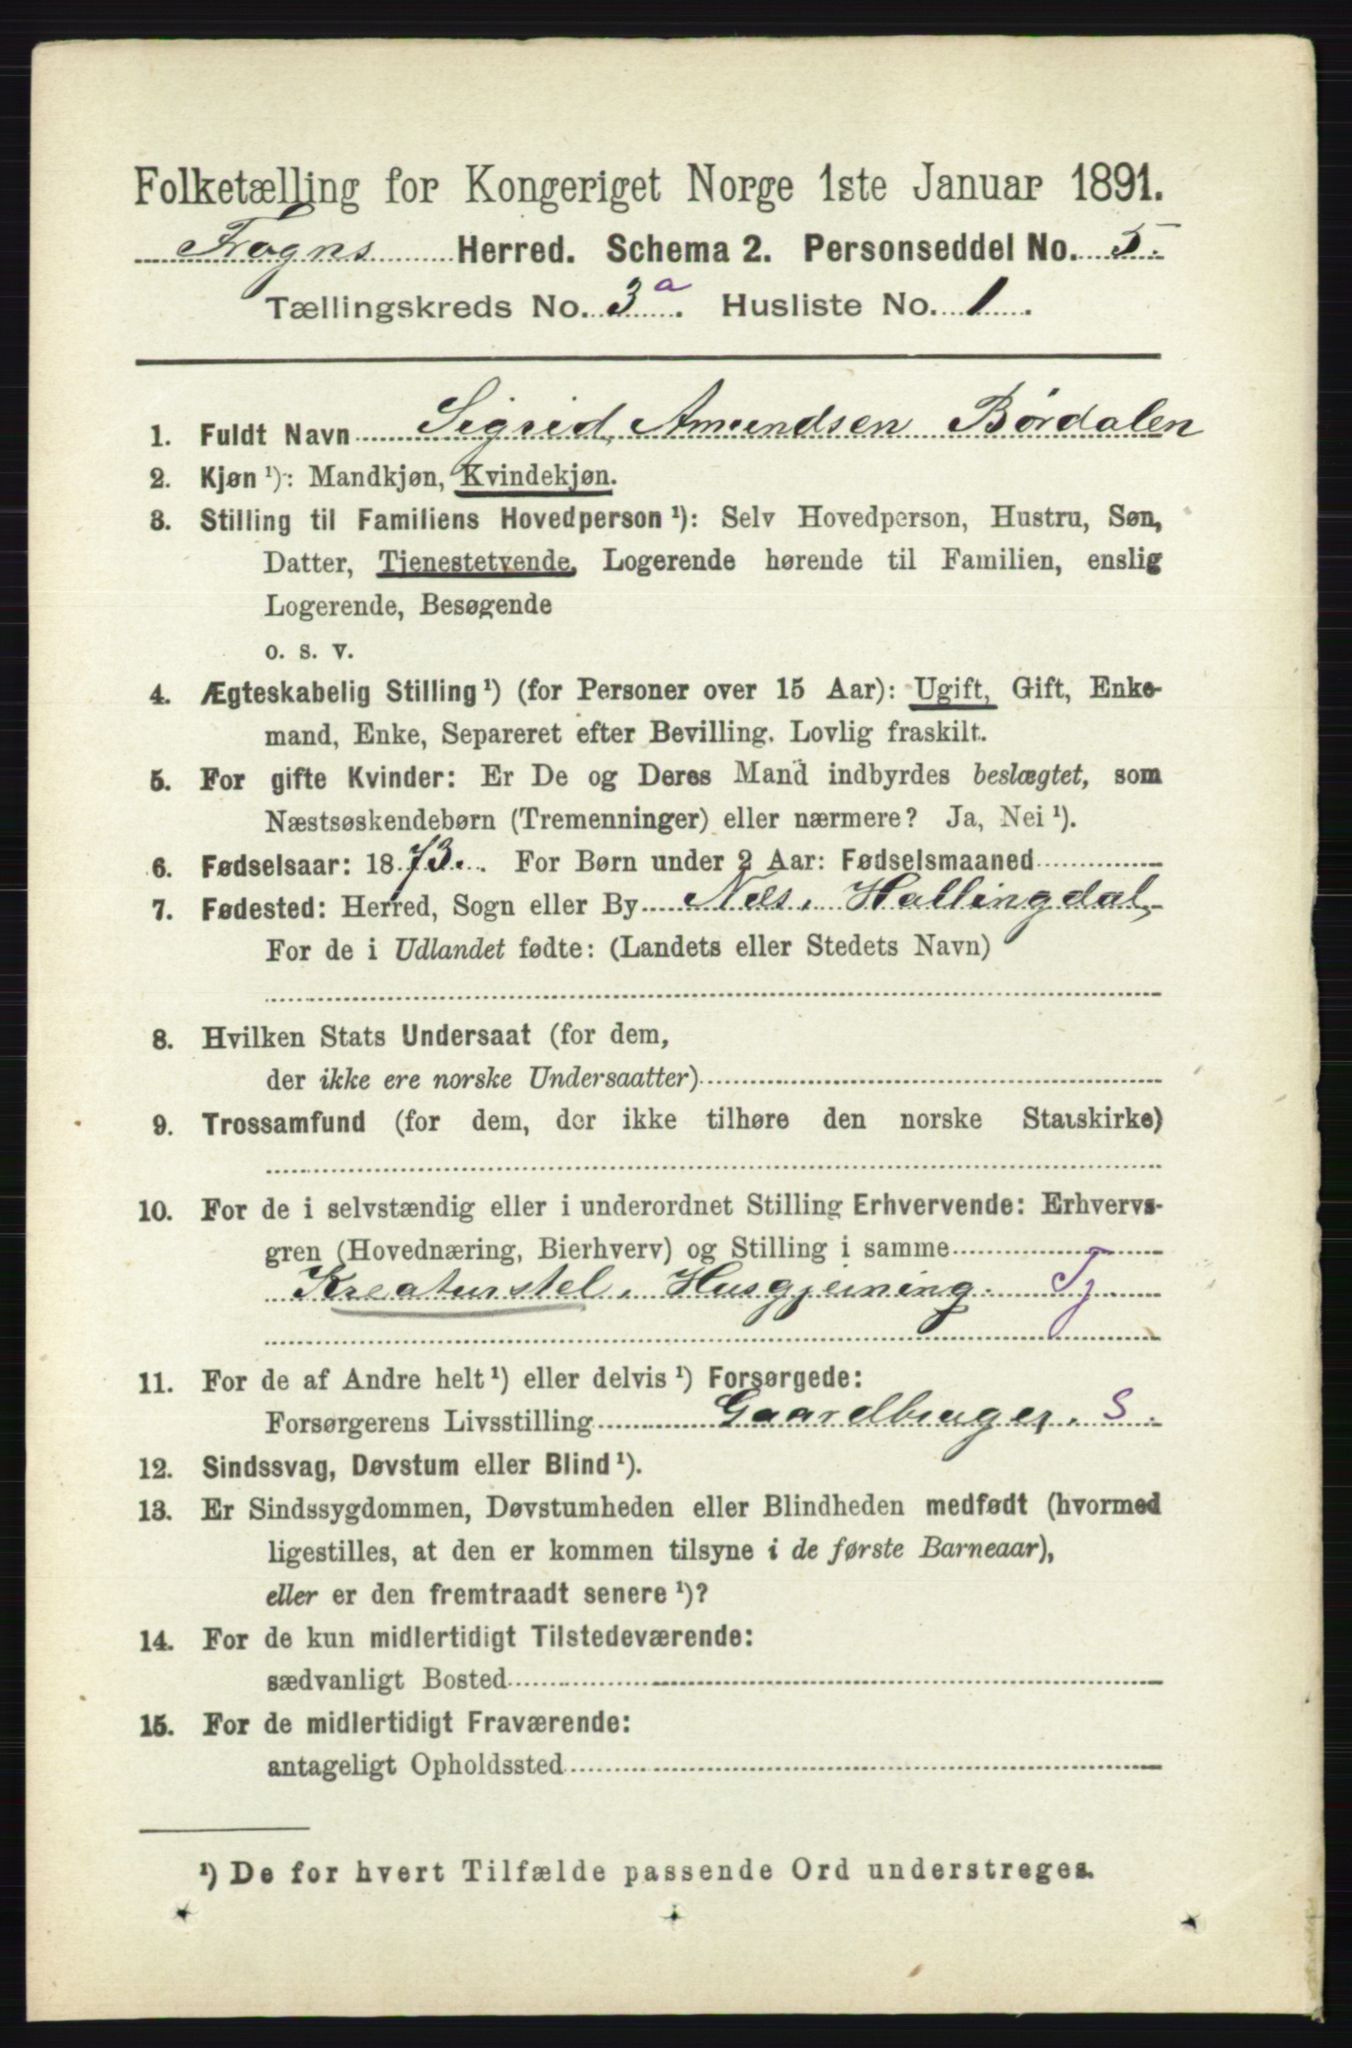 Folketælling for Kongeriget Norge 1ste Januar 1891.
Frogns Herred. Schema 2. Personseddel No. 5.
Tællingskreds No. 3a. Husliste No. 1.
1. Fuldt Navn Sigrid Amundsen Børdalen
2. Kjøn ¹): Mandkjøn, Kvindekjøn.
3. Stilling til Familiens Hovedperson ¹): Selv Hovedperson, Hustru, Søn,
Datter, Tjenestetyende, Logerende hørende til Familien, enslig
Logerende, Besøgende
o. s. v.
4. Ægteskabelig Stilling ¹) (for Personer over 15 Aar): Ugift, Gift, Enke-
mand, Enke, Separeret efter Bevilling. Lovlig fraskilt.
5. For gifte Kvinder: Er De og Deres Mand indbyrdes beslægtet, som
Næstsøskendebørn (Tremenninger) eller nærmere? Ja, Nei ¹).
6. Fødselsaar: 1873. For Børn under 2 Aar: Fødselsmaaned
7. Fødested: Herred, Sogn eller By Næs, Hallingdal,
For de i Udlandet fødte: (Landets eller Stedets Navn)
8. Hvilken Stats Undersaat (for dem,
der ikke ere norske Undersaatter)
9. Trossamfund (for dem, der ikke tilhøre den norske Statskirke)
10. For de i selvstændig eller i underordnet Stilling Erhvervende: Erhvervs-
gren (Hovednæring, Bierhverv) og Stilling i samme
Kreaturstel, Husgjerning. Tj
11. For de af Andre helt ¹) eller delvis ¹) Forsørgede:
Forsørgerens Livsstilling Gaardbruger. S.
12. Sindssvag, Døvstum eller Blind ¹).
13. Er Sindssygdommen, Døvstumheden eller Blindheden medfødt (hvormed
ligestilles, at den er kommen tilsyne i de første Barneaar),
eller er den fremtraadt senere ¹)?
14. For de kun midlertidigt Tilstedeværende:
sædvanligt Bosted
15. For de midlertidigt Fraværende:
antageligt Opholdssted
¹) De for hvert Tilfælde passende Ord understreges.